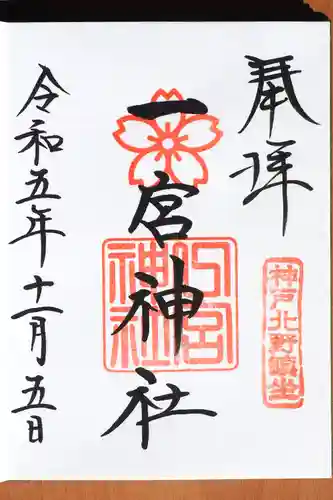 奉拝
神戸北野鎮坐
一宮神社
一宮神社
令和五年十一月五日